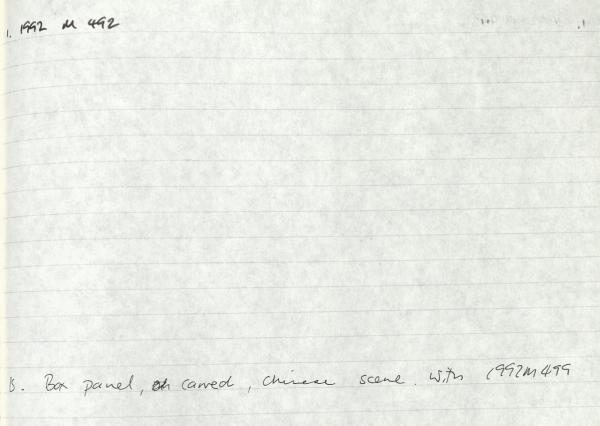 1. 1992 M 492
B. Box panel, carved, Chinese scene. With 1992M499